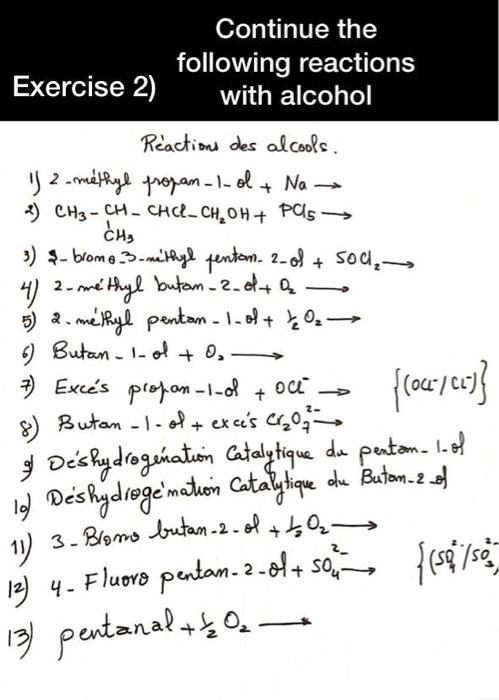 Continue the
following reactions
Exercise 2) with alcohol
Réactions des alcools.
1) 2-méthyl propan-1-ol + Na →
2) CH₃-CH-CHCl-CH₂OH + PCl₅ →
CH₃
3) -bromo 3-méthyl pentan-2-ol + SOCl₂ →
4) 2-méthyl butan-2-ol + O₂ →
5) 2-méthyl pentan-1-ol + ½ O₂ →
6) Butan-1-ol + O₂ →
7) Excés propan-1-ol + OCl⁻ → {(OCl⁻/Cl⁻)}
8) Butan-1-ol + excés Cr₂O₇²⁻ →
9) Déshydrogénation Catalytique du pentan-1-ol
10) Déshydrogénation Catalytique du Butan-2-ol
11) 3-Bromo butan-2-ol + ½ O₂ →
12) 4-Fluoro pentan-2-ol + SO₄²⁻ → {(SO₄²⁻/SO₃²⁻
13) pentanal + ½ O₂ →